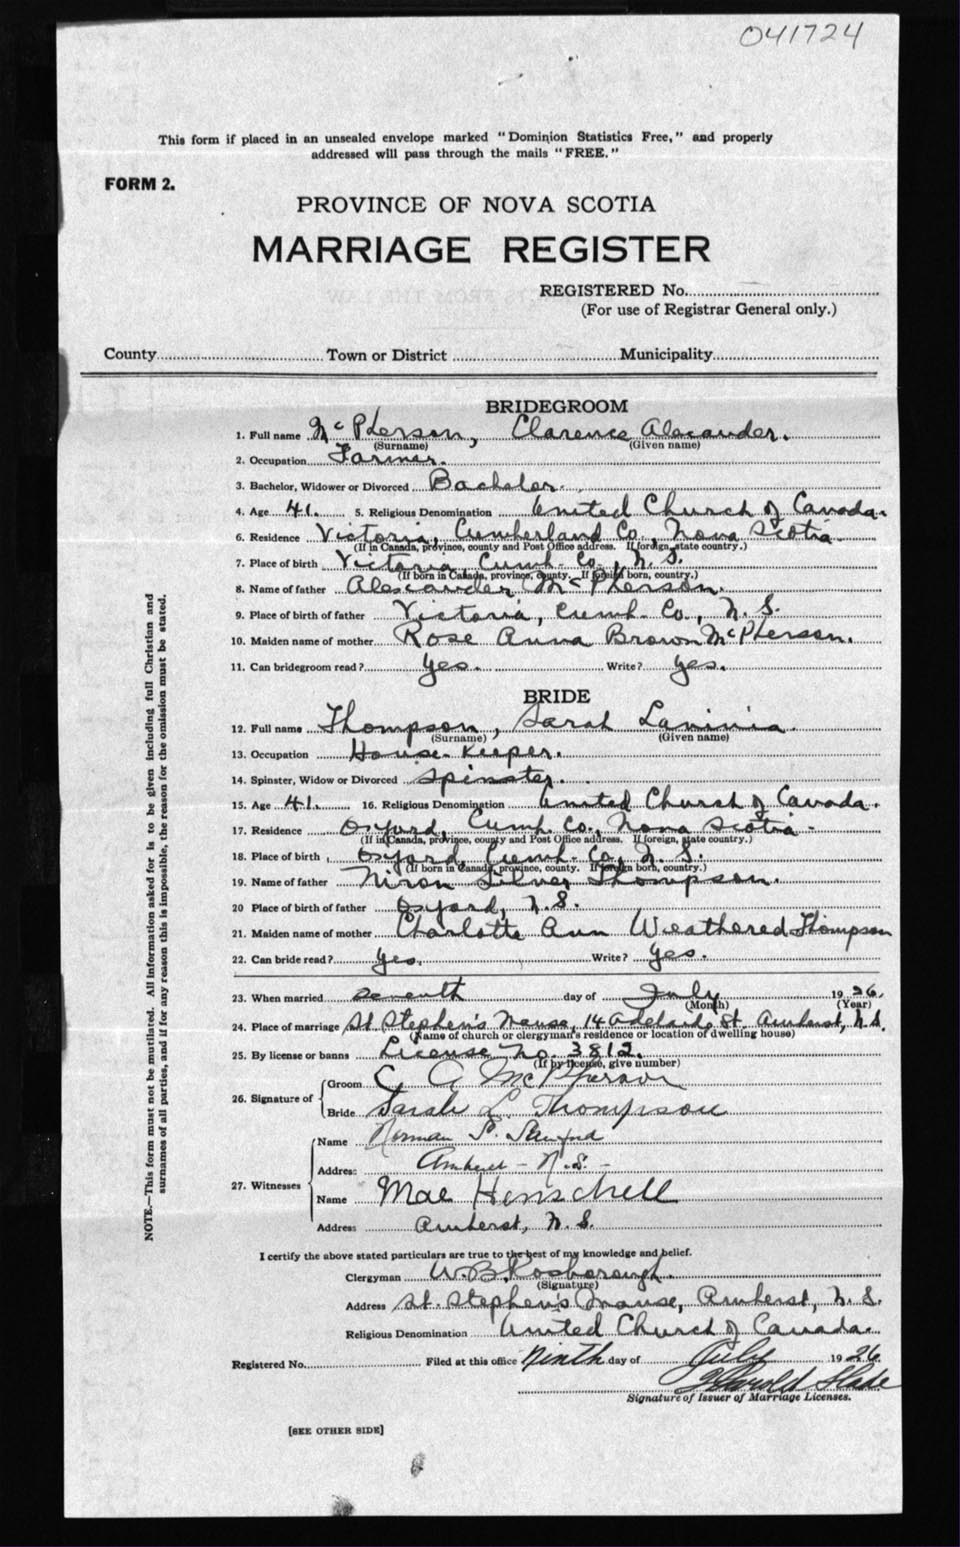 041724
This form if placed in an unsealed envelope marked "Dominion Statistics Free," and properly
addressed will pass through the mails "FREE."
FORM 2.
PROVINCE OF NOVA SCOTIA
MARRIAGE REGISTER
REGISTERED No.
(For use of Registrar General only.)
County Town or District Municipality
BRIDEGROOM
1. Full name McPherson, Clarence Alexander.
(Surname) (Given name)
2. Occupation Farmer.
3. Bachelor, Widower or Divorced Bachelor.
4. Age 41. 5. Religious Denomination United Church of Canada.
6. Residence Victoria, Cumberland Co., Nova Scotia.
(If in Canada, province, county and Post Office address. If foreign, state country.)
7. Place of birth Victoria, Cumb. Co., N.S.
(If born in Canada, province, county. If foreign born, country.)
8. Name of father Alexander McPherson.
9. Place of birth of father Victoria, Cumb. Co., N.S.
10. Maiden name of mother Rose Anna Brown McPherson.
11. Can bridegroom read? Yes. Write? Yes.
BRIDE
12. Full name Thompson, Sarah Lavinia
(Surname) (Given name)
13. Occupation House-Keeper.
14. Spinster, Widow or Divorced Spinster.
15. Age 41. 16. Religious Denomination United Church of Canada.
17. Residence Oxford, Cumb. Co., Nova Scotia.
(If in Canada, province, county and Post Office address. If foreign, state country.)
18. Place of birth Oxford, Cumb. Co., N.S.
(If born in Canada, province, county. If foreign born, country.)
19. Name of father Thompson.
20 Place of birth of father Oxford, N.S.
21. Maiden name of mother Charlotte Ann Weathered Thompson
22. Can bride read? Yes. Write? Yes.
23. When married seventh day of July 1926.
(Month) (Year)
24. Place of marriage St. Stephen's Manse, 14 Adelaide St. Amherst, N.S.
(Name of church or clergyman's residence or location of dwelling house)
25. By license or banns License No. 3812.
(If by license, give number)
26. Signature of Groom C. A. McPherson
Bride Sarah L. Thompson
27. Witnesses Name Norman
Address Amherst - N.S. -
Name Mae Henschell
Address Amherst, N.S.
I certify the above stated particulars are true to the best of my knowledge and belief.
Clergyman W.B. Rosborough.
(Signature)
Address St. Stephen's Manse, Amherst, N.S.
Religious Denomination United Church of Canada.
Registered No. Filed at this office Ninth day of July 1926.
Harold Slade
Signature of Issuer of Marriage Licenses.
[SEE OTHER SIDE]
NOTE.—This form must not be mutilated. All information asked for is to be given including full Christian and
surnames of all parties, and if for any reason this is impossible, the reason for the omission must be stated.